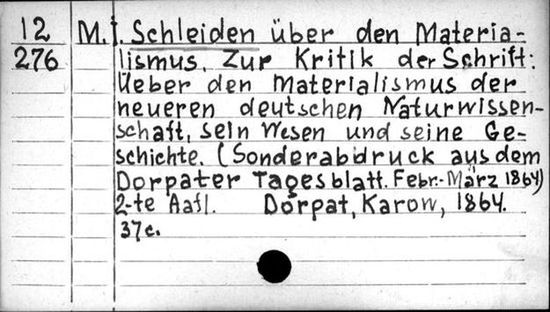 12 M.J. Schleiden über den Materia-
276 lismus. Zur Kritik der Schrift:
Ueber den Materialismus der
neueren deutschen Naturwissen-
schaft, sein Wesen und seine Ge-
schichte. (Sonderabdruck aus dem
Dorpater Tagesblatt. Febr.-März 1864)
2-te Aafl. Dorpat, Karow, 1864.
37c.